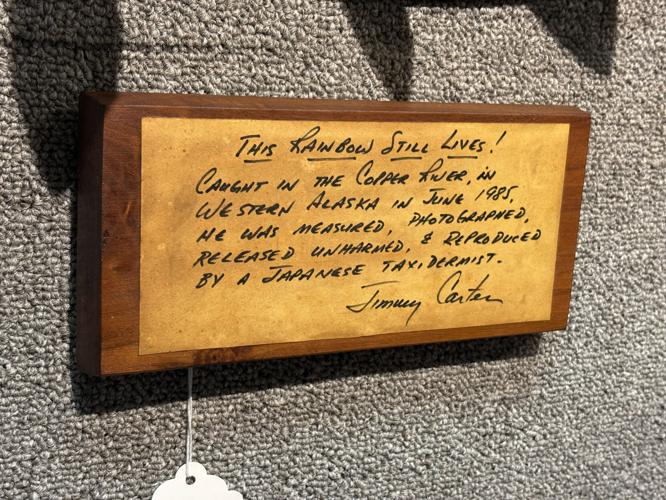 THIS RAINBOW STILL LIVES!
CAUGHT IN THE COPPER RIVER, IN
WESTERN ALASKA IN JUNE 1985,
HE WAS MEASURED, PHOTOGRAPHED,
RELEASED UNHARMED, & REPRODUCED
BY A JAPANESE TAXIDERMIST.
Jimmy Carter